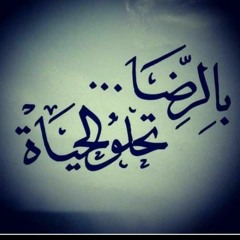 بِالرِّضَا...
تحلو الحياة